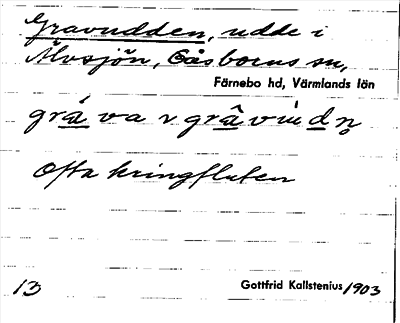 Gravudden, udde i
Älvsjön, Gåsborns sn,
Färnebo hd, Värmlands län
grá va ɿ grâvùdn̥
Ofta kringfluten
13 Gottfrid Kallstenius 1903